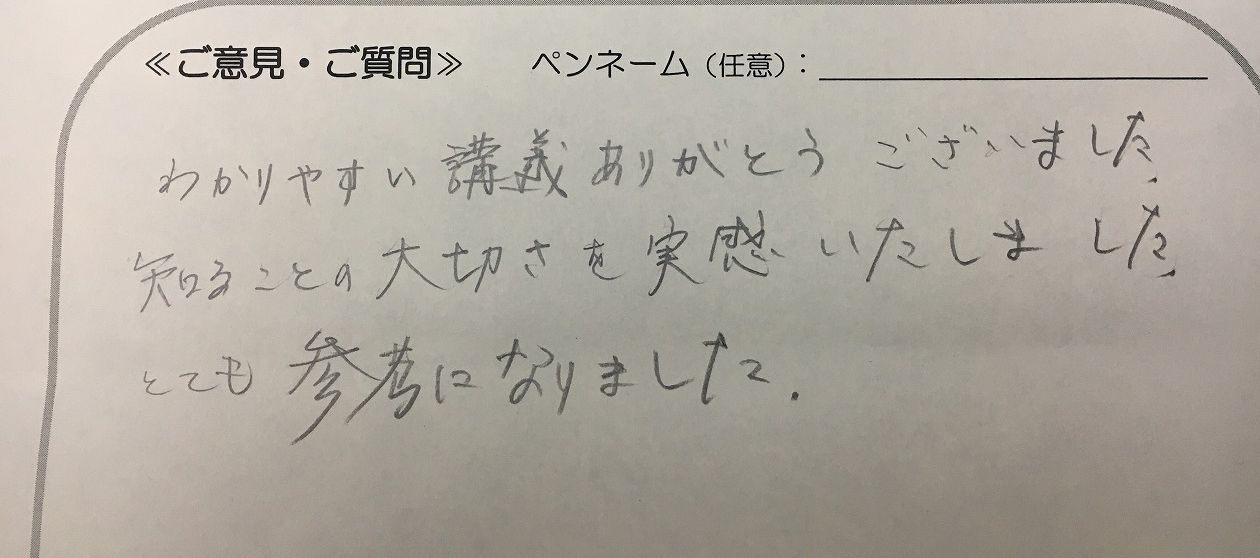 ≪ご意見・ご質問≫ ペンネーム（任意）：
わかりやすい講義ありがとうございました.
知ることの大切さを実感いたしました.
とても参考になりました.